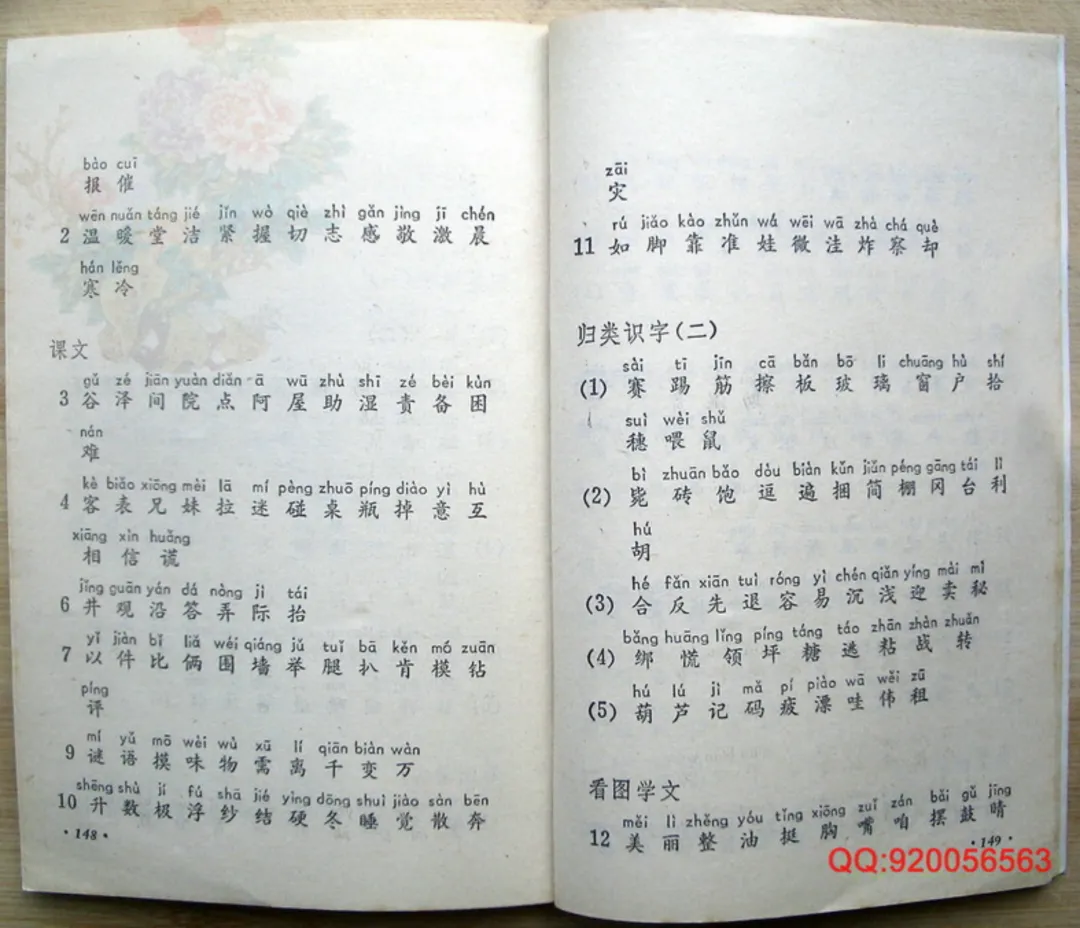 bào cuī
报 催
wēn nuǎn táng jié jǐn wò qiè zhì gǎn jìng jī chén
2 温 暖 堂 洁 紧 握 切 志 感 敬 激 晨
hán lěng
寒 冷
课文
gǔ zé jiān yuàn diǎn ā wū zhù shī zé bèi kùn
3 谷 泽 间 院 点 阿 屋 助 湿 责 备 困
nán
难
kè biǎo xiōng mèi lā mí pèng zhuō píng diào yì hù
4 客 表 兄 妹 拉 迷 碰 桌 瓶 掉 意 互
xiāng xìn huǎng
相 信 谎
jǐng guān yán dá nòng jì tái
6 井 观 沿 答 弄 际 抬
yǐ jiàn bǐ liǎ wéi qiáng jǔ tuǐ bā kěn mó zuān
7 以 件 比 俩 围 墙 举 腿 扒 肯 模 钻
píng
评
mí yǔ mō wèi wù xū lí qiān biàn wàn
9 谜 语 摸 味 物 需 离 千 变 万
shēng shù jí fú shā jié yìng dōng shuì jiào sàn bēn
10 升 数 极 浮 纱 结 硬 冬 睡 觉 散 奔
·148·
zāi
灾
rú jiǎo kào zhǔn wá wēi wā zhà chá què
11 如 脚 靠 准 娃 微 洼 炸 察 却
归类识字(二)
sài tī jīn cā bǎn bō li chuāng hù shí
(1) 赛 踢 筋 擦 板 玻 璃 窗 户 拾
suì wèi shǔ
穗 喂 鼠
bì zhuān bǎo dòu biàn kǔn jiǎn péng gāng tái lì
(2) 毙 砖 饱 逗 遍 捆 简 棚 冈 台 利
hú
胡
hé fǎn xiān tuì róng yì chén qiǎn yíng mài mì
(3) 合 反 先 退 容 易 沉 浅 迎 卖 秘
bǎng huāng lǐng píng táng táo zhān zhàn zhuǎn
(4) 绑 慌 领 坪 糖 逃 粘 战 转
hú lú jì mǎ pí piào wā wěi zū
(5) 葫 芦 记 码 疲 漂 哇 伟 租
看图学文
měi lì zhěng yóu tǐng xiōng zuǐ zán bǎi gǔ jīng
12 美 丽 整 油 挺 胸 嘴 咱 摆 鼓 睛
·149·
QQ:920056563